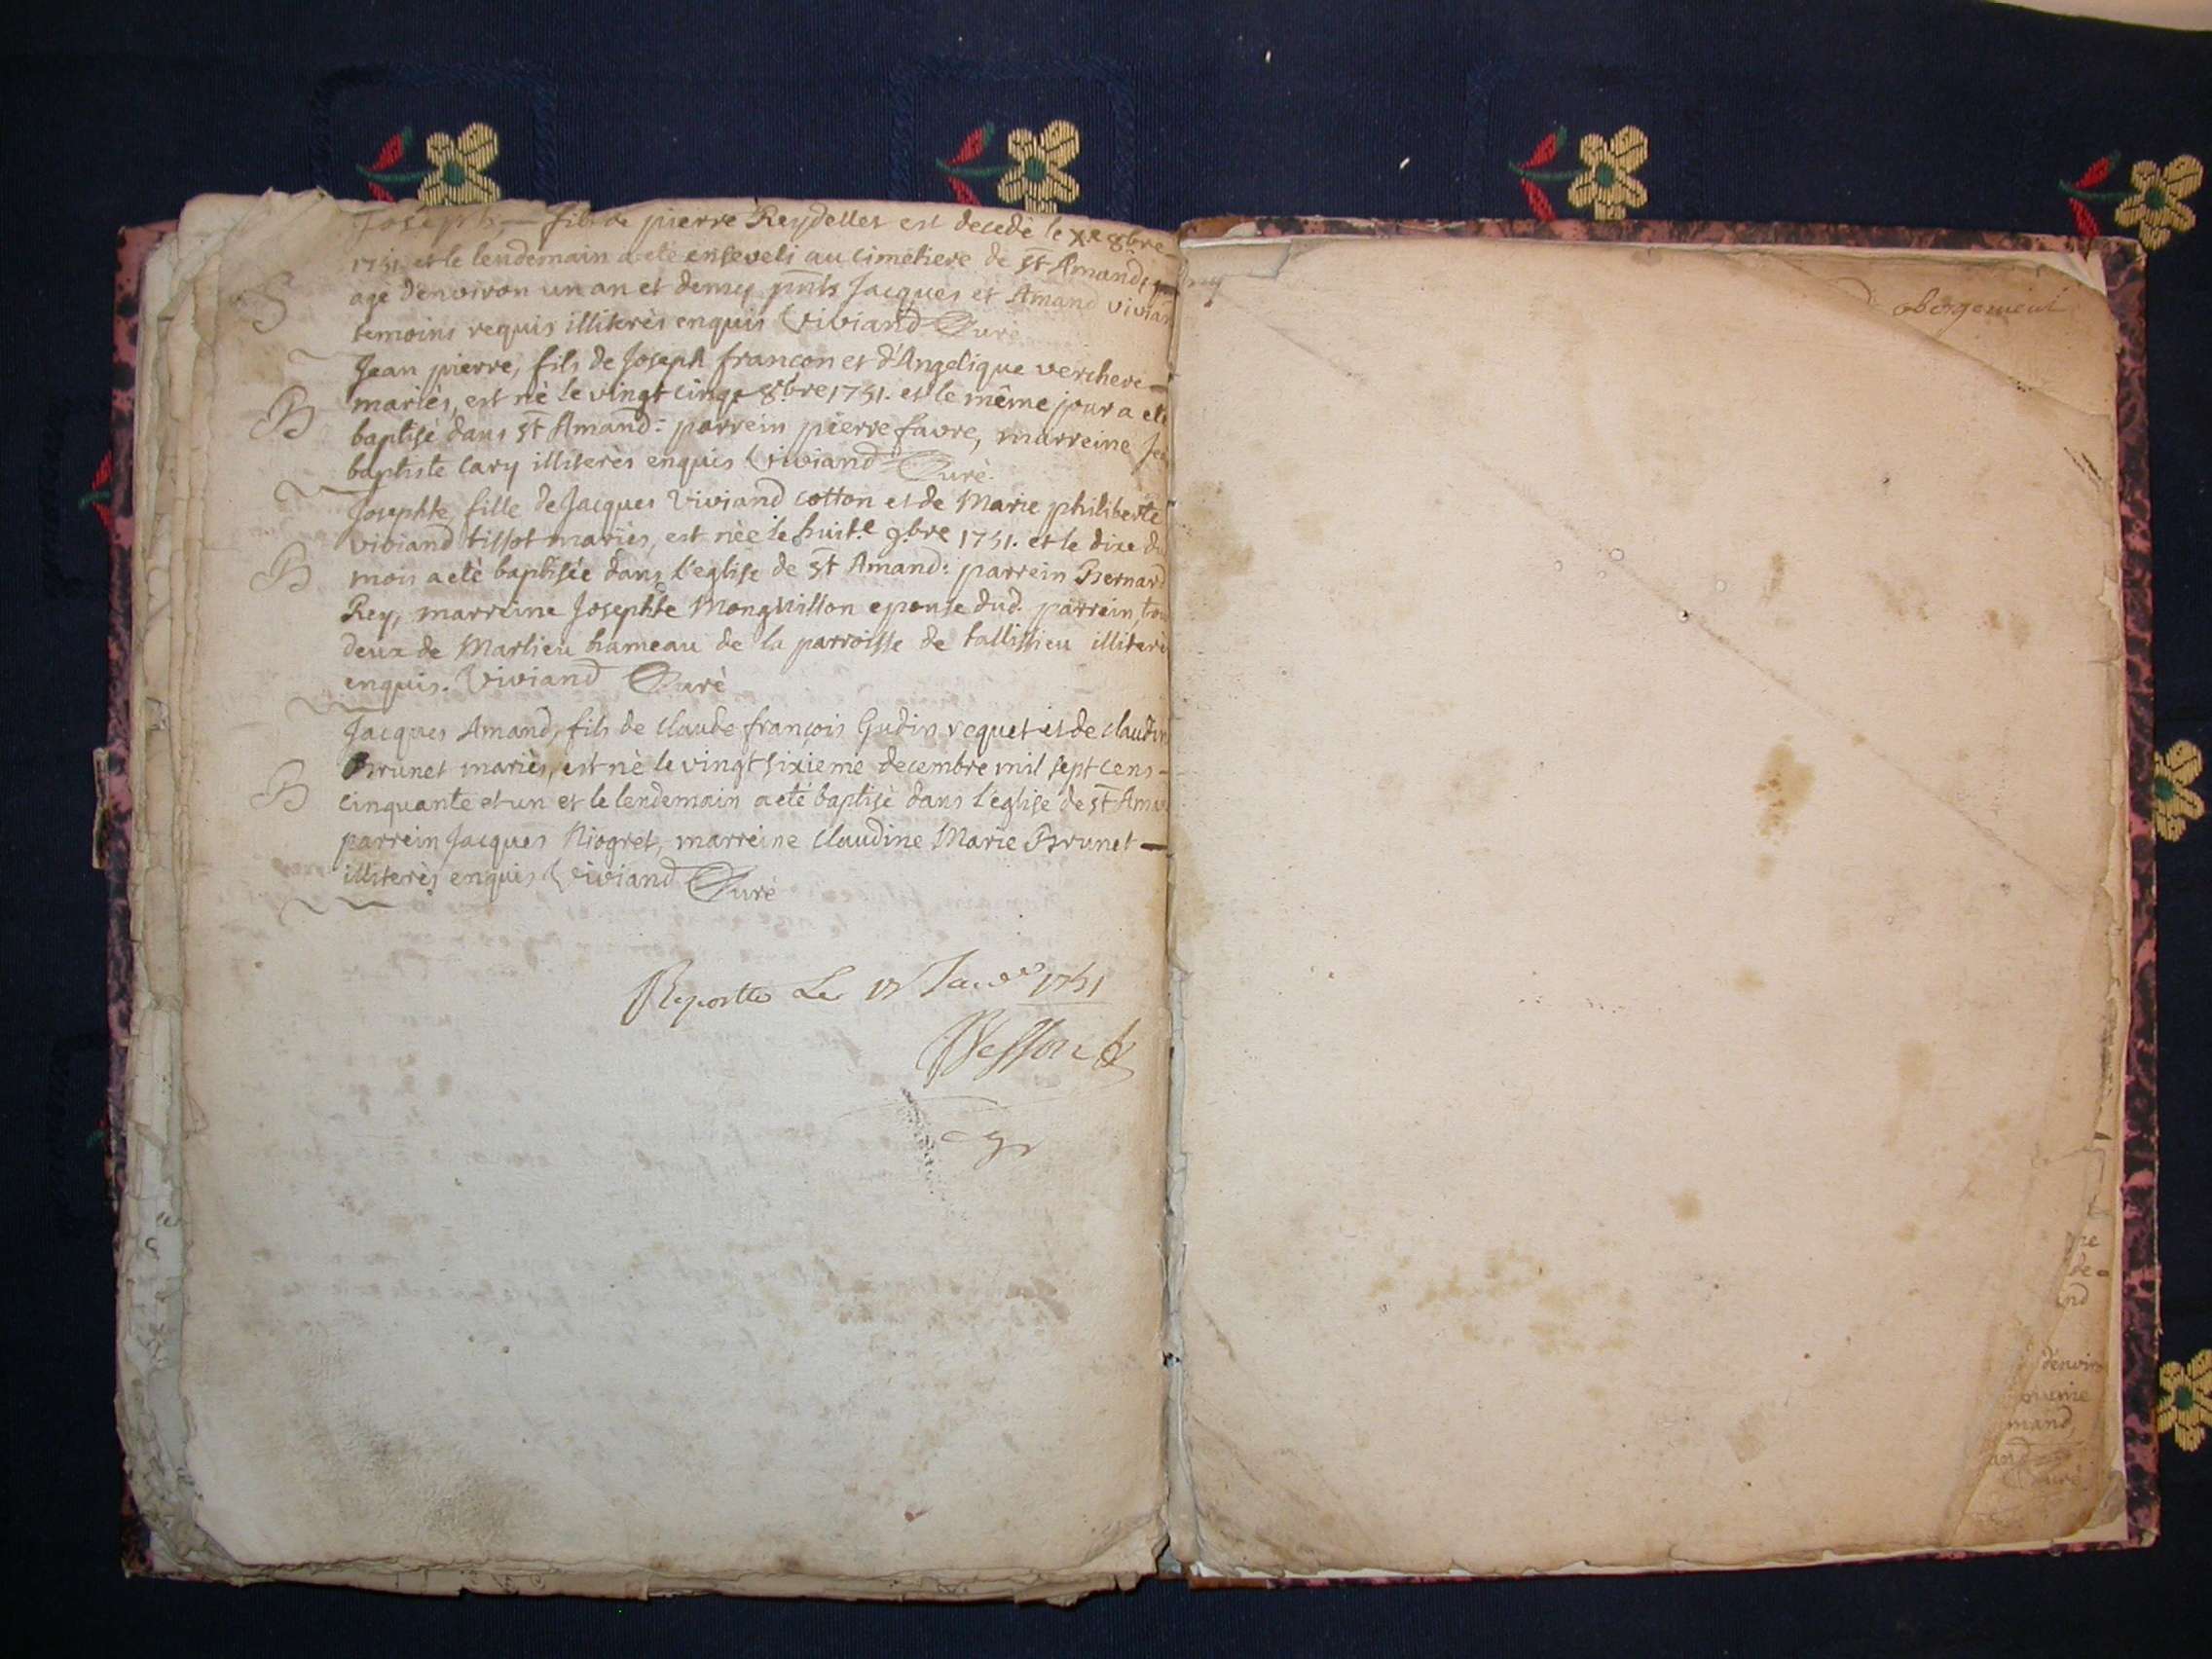 Joseph, fils de pierre Reydellet est decedè le Xe 8bre
1751. et le lendemain a etè enseveli au cimetiere de St Amand,
S
age d'environ un an et demy pnts Jacques et Amand vivian
temoins requis illiterès enquis Viviand Curè
Jean pierre, fils de Joseph françon et d'Angelique verchere
mariès, est nè le vingt cinqe 8.bre 1751. et le même jour a etè
B
baptisè dans St Amand: parrein pierre favre, marreine Jea
baptiste Cary illiterès enquis Viviand Curè.
Josephte fille de Jacques Viviand cotton et de Marie philiberte
viviand tissot mariès, est nèe le huit.e 9.bre 1751. et le dixe du
B
mois a etè baptisèe dans l'eglise de St Amand: parrein Bernard
Rey, marreine Josephte Monguillon epouse dud. parrein, tou
deux de Marlieu hameau de la parroisse de tallissieu illiterè
enquis. Viviand Curè
Jacques Amand, fils de claude françois Gudin requet et de claudin
Brunet mariès, est nè le vingt sixieme decembre mil sept cens
B
cinquante et un et le lendemain a etè baptisè dans l'eglise de St Ama
parrein Jacques Niogret, marreine claudine Marie Brunet
illiterès enquis Viviand Curè
Le 1751
abergement
re
de
nd
d'enviro
mand,
and
Curè